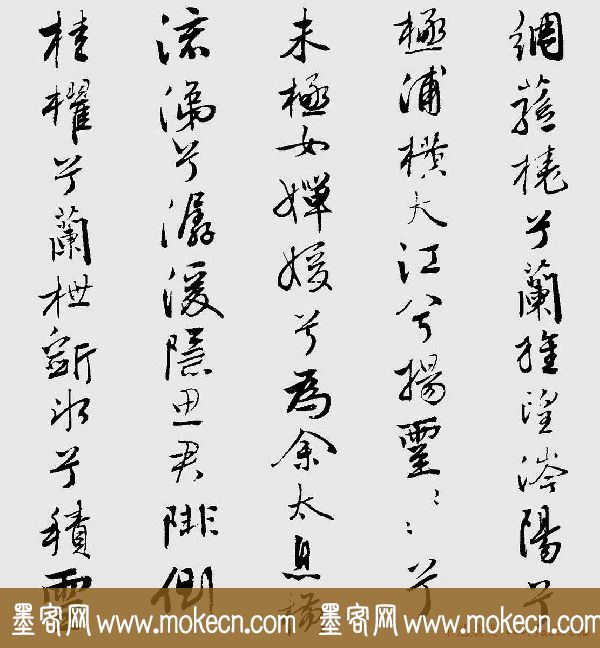 綢蓀橈兮蘭旌望涔陽兮
極浦橫大江兮揚靈〻〻兮
未極女嬋媛兮為余太息橫
流涕兮潺湲隱思君陫側
桂櫂兮蘭枻斲冰兮積雪
墨客网 www.mokecn.com 墨客网 www.mokecn.com